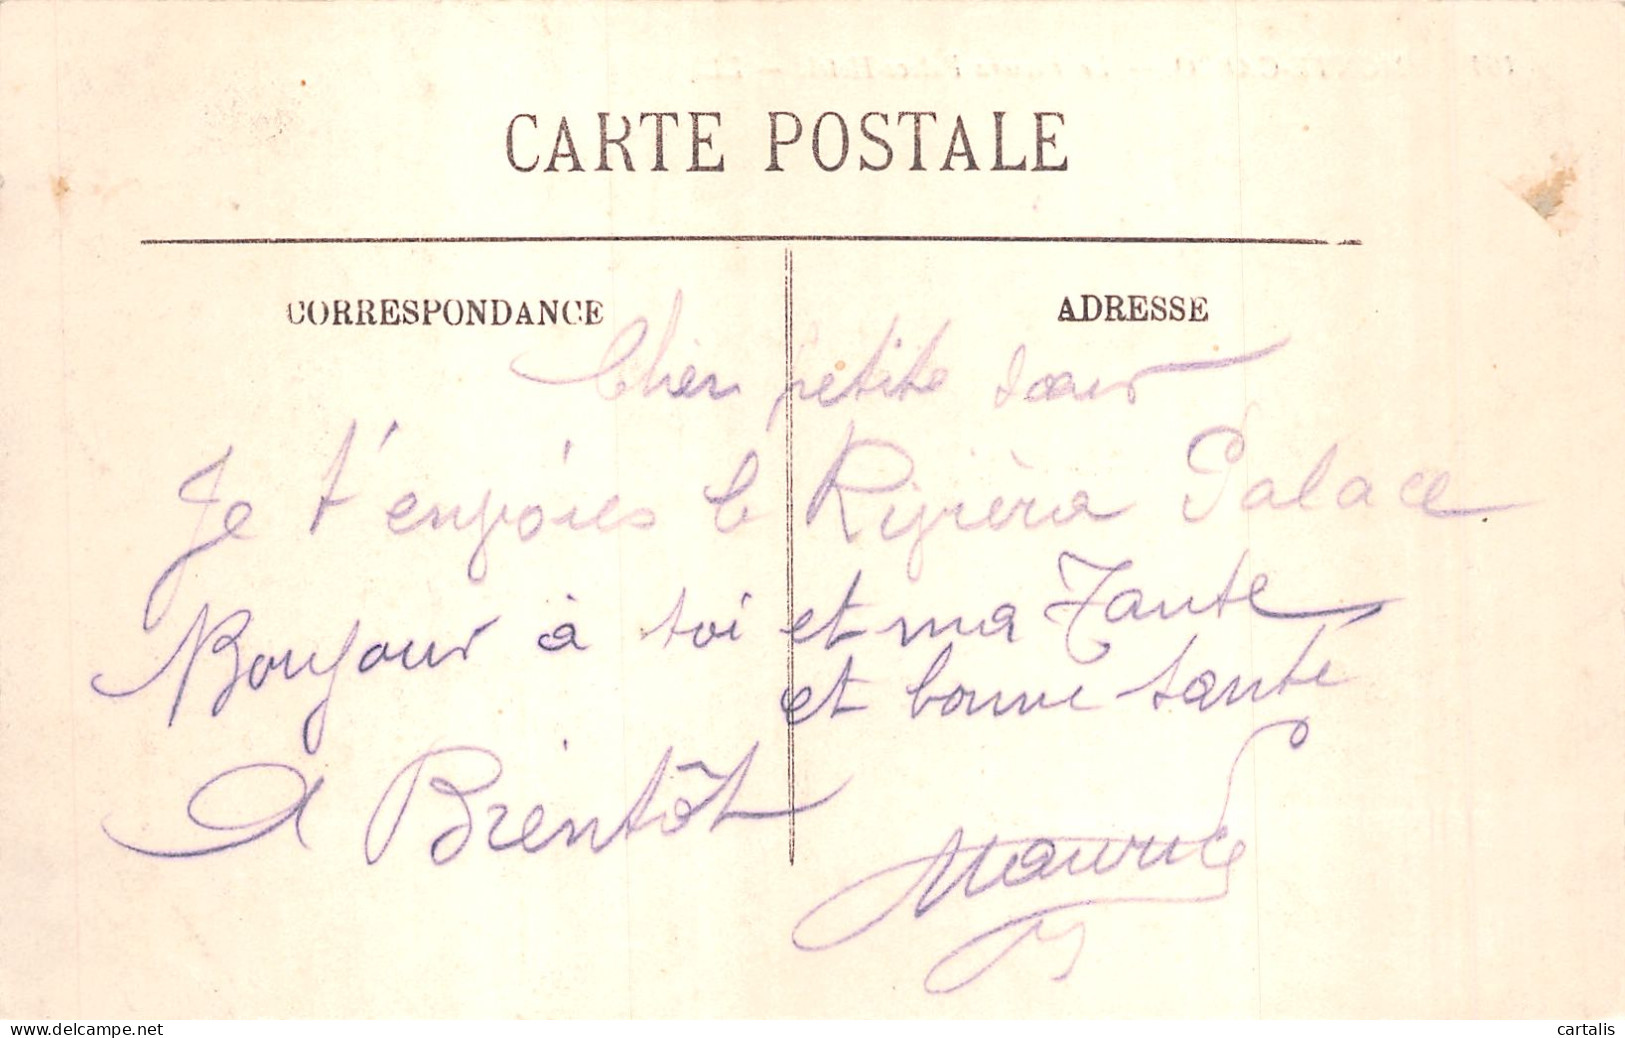 CARTE POSTALE
CORRESPONDANCE
ADRESSE
Cher petite sœur
Je t'envoies le Rivièra Palace
Bonjour à toi et ma Tante
et bonne sante
A Bientôt
Maurice
www.delcampe.net
cartalis